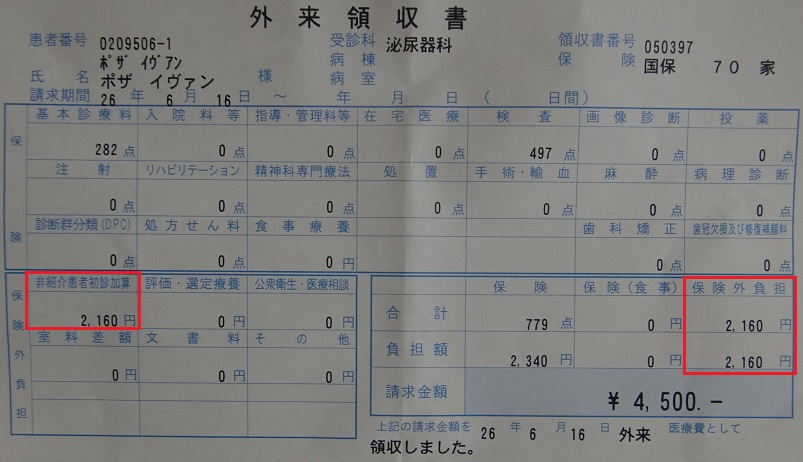 外来領収書
患者番号 0209506-1 受診科 泌尿器科 領収書番号 050397
ﾎﾟｻﾞ ｲｳﾞｧﾝ 病棟 保険 国保 70 家
氏名 ボザ イヴァン 様 病室
請求期間 26 年 6 月 16 日 ～ 年 月 日 ( 日間)
保険
基本診療料 入院料等 指導・管理料等 在宅医療 検査 画像診断 投薬
282 点 0 点 0 点 0 点 497 点 0 点 0 点
注射 リハビリテーション 精神科専門療法 処置 手術・輸血 麻酔 病理診断
0 点 0 点 0 点 0 点 0 点 0 点 0 点
診断群分類(DPC) 処方せん料 食事療養 歯科矯正 歯冠欠損及び修復補綴料
0 点 0 点 0 円 0 点 0 点
保険外負担
非紹介患者初診加算 評価・選定療養 公衆衛生・医療相談
2,160 円 0 円 0 円
室料差額 文書料 その他
0 円 0 円 0 円
保険 保険(食事) 保険外負担
合計 779 点 0 円 2,160 円
負担額 2,340 円 0 円 2,160 円
請求金額 ¥ 4,500.-
上記の請求金額を 26 年 6 月 16 日 外来 医療費として
領収しました。